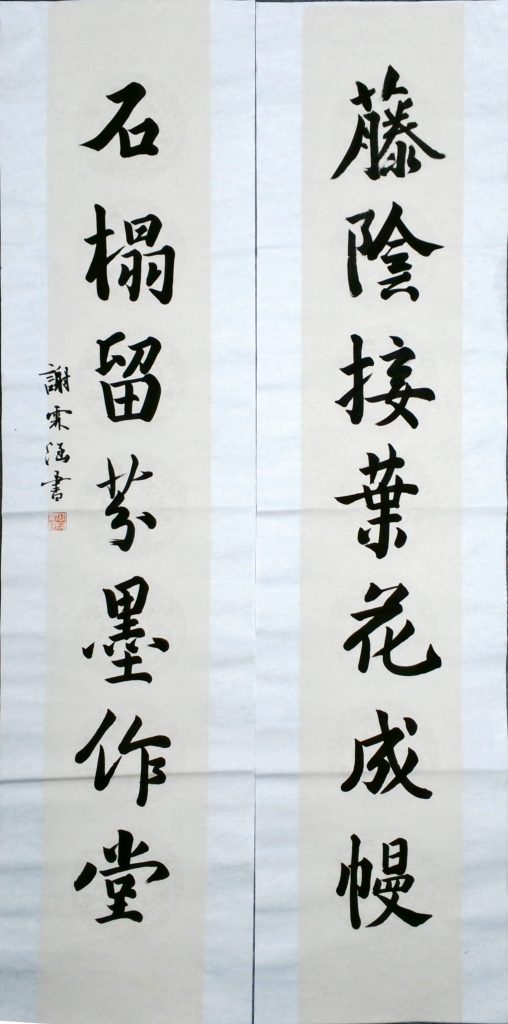 藤陰接葉花成幔
石榻留芬墨作堂
謝霖涵書